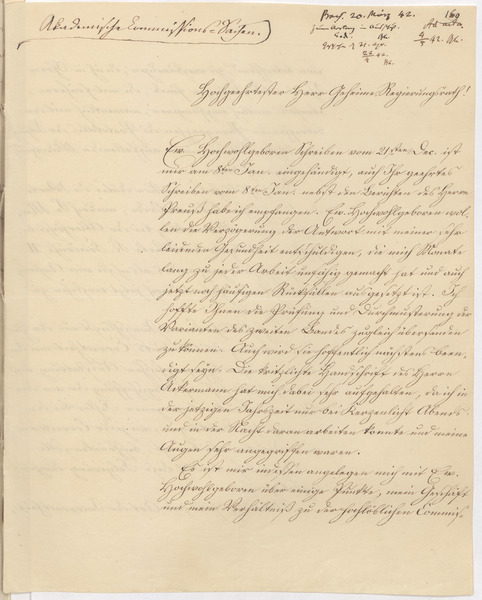 Akademische Commissions-Sachen.
Praes. 20. März 42.
169
Ad acta.
Hochgeehrtester Herr Geheime Regierungsrath!
Ew. Hochwohlgeboren Schreiben vom 21sten Dec. ist
mir am 8ten Jan. eingehändigt, auch Ihr geehrtes
Schreiben vom 8ten Jan. nebst den Berichten des Herrn
Preuß habe ich empfangen. Ew. Hochwohlgeboren wol-
len die Verzögerung der Antwort mit meiner sehr
leidenden Gesundheit entschuldigen, die mich Monate
lang zu jeder Arbeit unfähig gemacht hat und auch
jetzt noch häufigen Rückfällen ausgesetzt ist. Ich
hoffte Ihnen die Prüfung und Durchmusterung der
Varianten des zweiten Bandes zugleich übersenden
zu können. Auch wird sie hoffentlich nächstens been-
digt seyn. Die kritzlichte Handschrift des Herrn
Ackermann hat mich dabei sehr aufgehalten, da ich in
der jetzigen Jahrszeit nur bei Kerzenlicht Abends
und in der Nacht daran arbeiten konnte und meine
Augen sehr angegriffen waren.
Es ist mir indessen angelegen mich mit Ew.
Hochwohlgeboren über einige Punkte, mein Geschäft
und mein Verhältniß zu der hochlöblichen Commis-